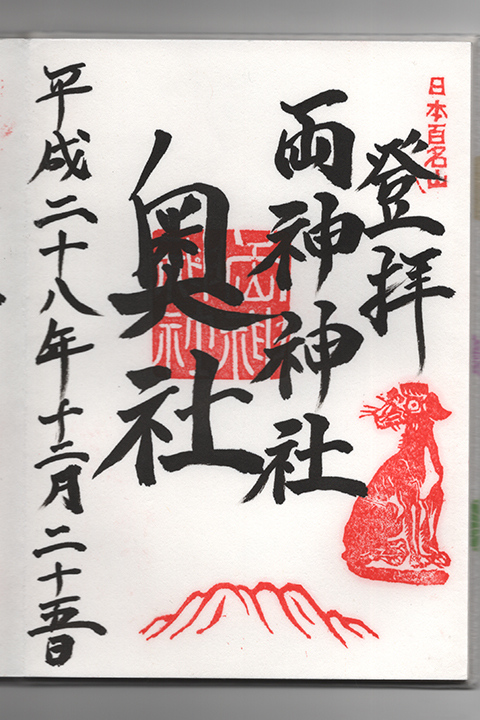 日本百名山
登拝
両神神社
奥社
平成二十八年十二月二十五日